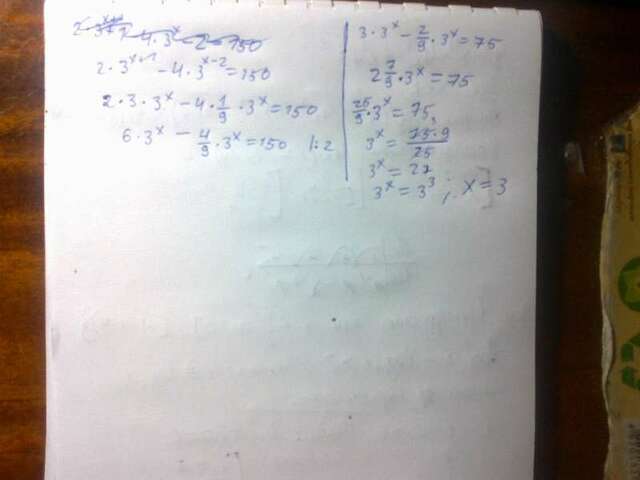 2·3^x+1 - 4·3^x-2=150
2·3^x+1 - 4·3^x-2=150
2·3·3^x-4·1/9·3^x=150
6·3^x - 4/9·3^x=150 |:2
3·3^x - 2/9·3^x=75
2 7/9·3^x=75
25/9·3^x=75
3^x = 75·9/25
3^x = 27
3^x = 3^3; x=3